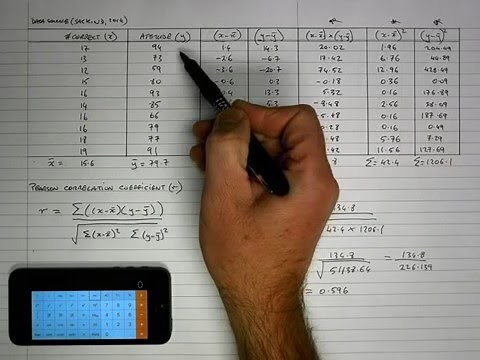 DATA SOURCE (JACKSON, 2014)
# CORRECT (x) APTITUDE (y) (x-x̄) (y-ȳ) (x-x̄) × (y-ȳ) (x-x̄)² (y-ȳ)²
17 94 1.4 14.3 20.02 1.96 204.49
13 73 -2.6 -6.7 17.42 6.76 44.89
12 59 -3.6 -20.7 74.52 12.96 428.49
15 80 -0.6 0.3 -0.18 0.36 0.09
16 93 0.4 13.3 5.32 0.16
14 85 5.3 -8.48 2.56 28.09
16 66 0.16 187.69
16 79 0.16 0.49
18 77 5.76 7.29
19 91 11.56 127.69
x̄ = 15.6 ȳ = 79.7 Σ = 42.4 Σ = 1206.1
PEARSON CORRELATION COEFFICIENT (r)
r = Σ((x-x̄)(y-ȳ))
√Σ(x-x̄)² Σ(y-ȳ)²
134.8
42.4 × 1206.1
134.8 = 134.8
√51138.64 226.139
= 0.596